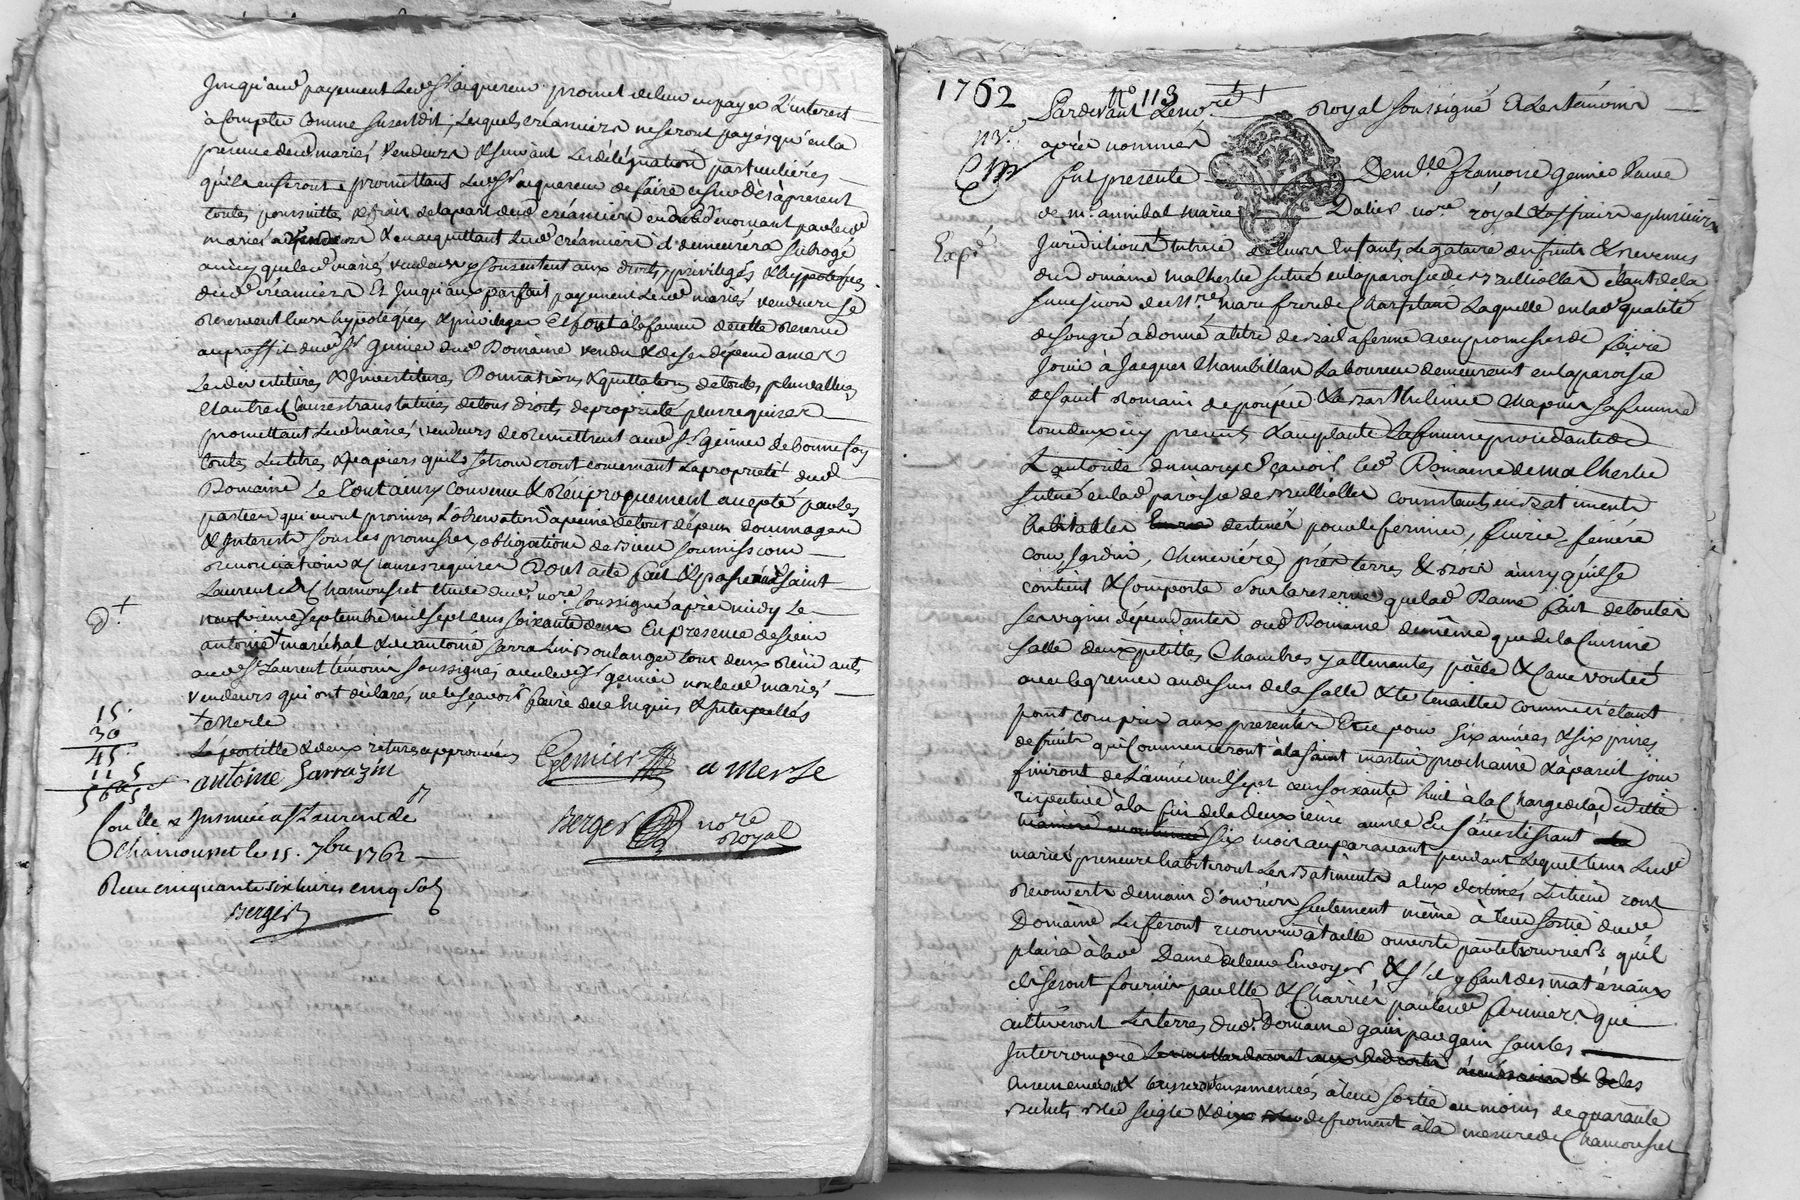 Jusqu'aud payement Led Sr acquereur promet de leur en payer L'interest
à Compter Comme susest dit, Lesquels créanciers ne seront payés qu'en la
presence desd mariés vendeurs & suivant Les délégations particulières
qu'ils en feront promettant Led Sr acquereur de faire cesser dès à present
toutes poursuittes & frais de la part desd créanciers
mariés vendeurs & en acquittant Lesd créanciers il demeurera subrogé
ainsy que lesd mariés vendeurs y Consentent aux droits, privilegés & hypoteques
desd créanciers Et Jusqu'aux parfait payement Lesd mariés vendeurs se
reservent leurs hypoteques & privileges Et font à la faveur de cette reserve
au proffit dud Sr Genier dud Domaine vendu & de ses dépendances
Les devestitures & Investitures Donnations & quittations de toutes plus values
Et autres Clauses translatives de tous droits de proprieté plus requises
promettant Lesd mariés vendeurs de remettre aud Sr Genier de bonne foy
toutes Les titres & papiers qu'ils se trouveront concernant La proprieté dud
Domaine Le tout ainsy Convenu & réciproquement accepté par les
parties qui en ont promis L'observation à peine de tous dépens dommages
& Interests sous les promesses, obligations de biens soumissions
renonciations & Clauses requises Dont acte fait & passé aud Saint
Laurent de Chamousset Etude dud nore soussigné après midy Le
neufvieme septembre mil sept cens soixante deux En presence de sieur
antoine + maréchal & de antoine Sarrazin Boulanger tous deux residants
aud St Laurent témoins soussignés avec led Sr Genier non lesd mariés
vendeurs qui ont déclaré ne le sçavoir faire de ce Enquis & Interpellés
+ Merle
L'apostille & deux ratures approuvées
antoine Sarrazin
Genier
a Merle
Berger nore Royal
15.
30
45.
11 5
56 5
Conllé & Insinué a St Laurent de
Chamousset le 15. 7bre 1762
Reçu cinquante six livres cinq sols
Berger
1762
No 113
Pardevant Le nore Royal soussigné Et Les témoins
après nommés
Fut presente Demlle françoise genier veuve
de Me annibal marie Dalier nore royal & offices a plusieurs
Exp.é
Juridictions + tutrice de leurs Enfants, Legataire des fruits & revenus
du domaine malherbe situé en la paroisse de Brullioles étant de la
succession de Mre Laquelle en lad qualité
de son gré a donné à titre de bail à ferme avec promesse de faire
jouir à Jacques Chambillan Laboureur demeurant en la paroisse
de saint Romain de popée & Barthelemie Chapuis sa femme
tous deux icy presents & acceptants La femme procedante de
L'autorité du mary Sçavoir led Domaine de malherbe
situé en lad paroisse de Brullioles consistants en Batiments
habitables destinés pour le fermier, Ecurie, feniére
cour, Jardin, Cheneviére, prés terres & bois ainsy qu'il se
contient & Comporte sous la reserve que lad Dame fait de toutes
Les vignes dépendantes dud Domaine de même que de la Cuisine
salle deux petites Chambres y attenantes poële & Cave voutée
avec le grenier au dessus de la salle & le tenallier comme n'étant
point compris aux presentes Et ce pour six années & six prises
de fruits qui Commenceront à la saint martin prochaine & à pareil jour
finiront de L'année mil sept cens soixante huit à la charge de la dédite
respective à la fin de la deuxieme année En s'avertissant
six mois auparavant pendant Lequel tems Lesd
mariés preneurs habiteront Les Batiments a Eux destinés Les tiendront
recouverts de main d'ouvrier seulement même à leur sortie dud
Domaine Les feront recouvrir à taille ouverte par tels ouvriers qu'il
plaira à lad Dame de leur Envoyer & s'il y faut des matériaux
ils seront fournis par Elle & Charriés par lesd fermiers qui
cultiveront Les terres dud Domaine gain par gain sans les
Interrompre
Ensemenceront & Laisseront Ensemencées à leur sortie au moins de quarante
Bichets Bled seigle & de froment à la mesure de Chamousset